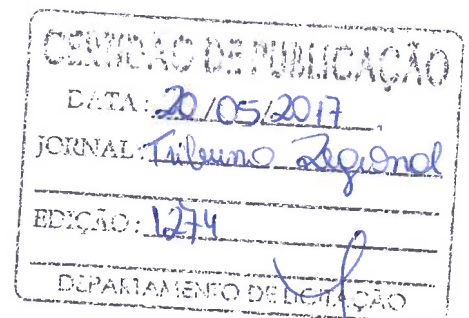 CERTIDÃO DE PUBLICAÇÃO
DATA: 20/05/2017
JORNAL: Tribuna Regional
EDIÇÃO: 1274
DEPARTAMENTO DE LICITAÇÃO